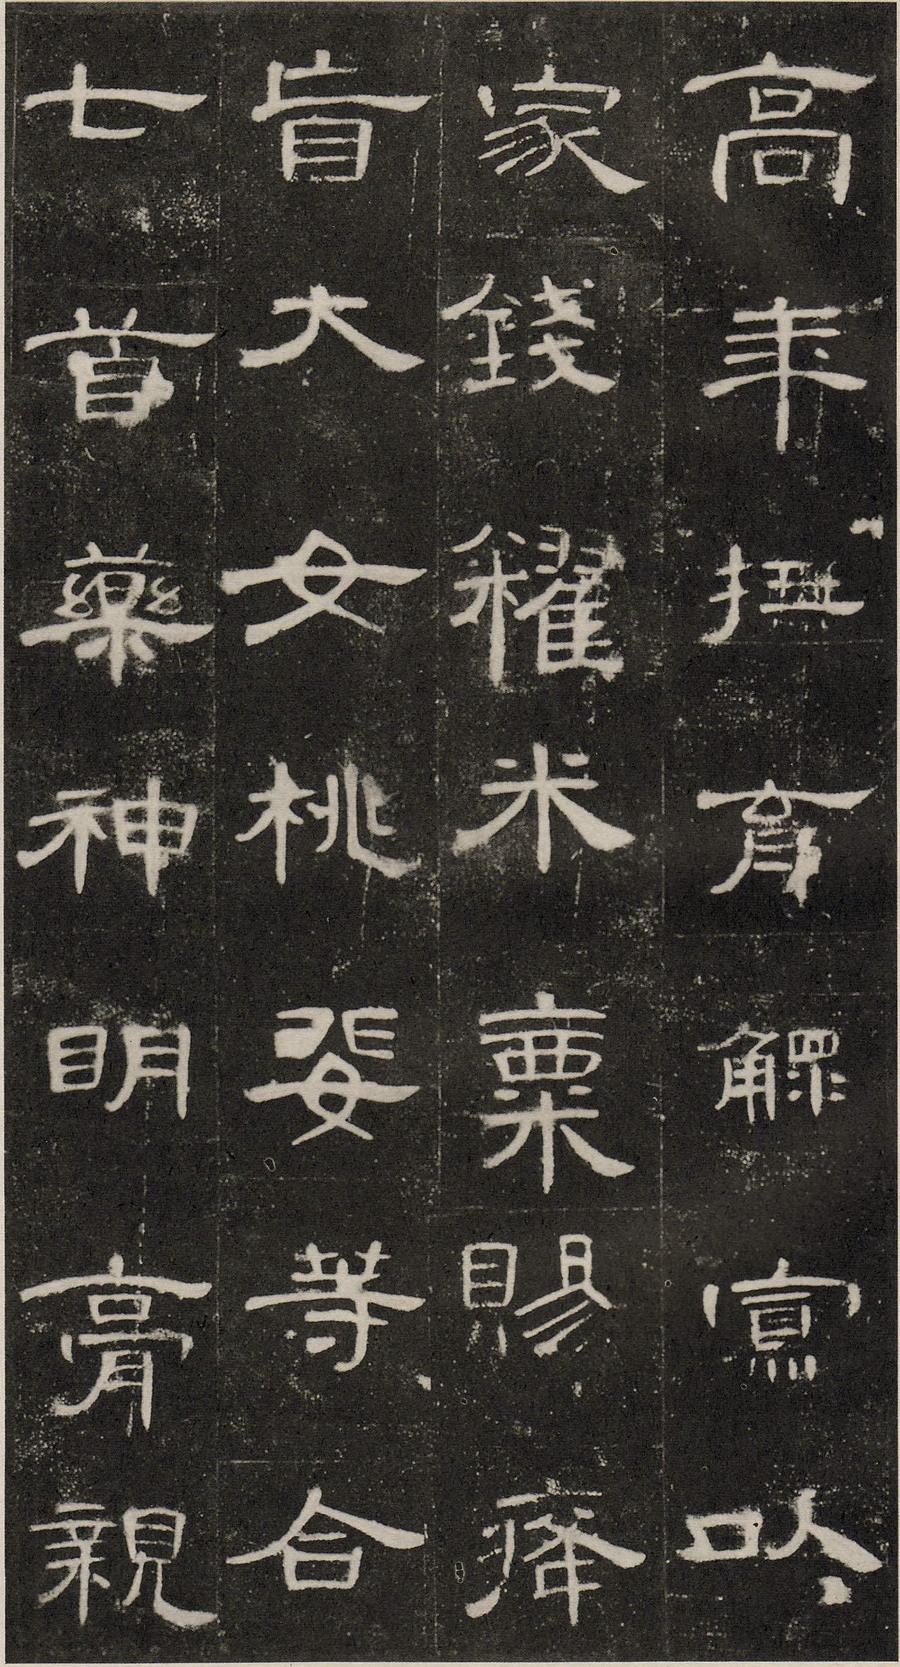 高年撫育鰥寡以
家錢糴米粟賜𤸇
盲大女桃婓等合
七首藥神明膏親